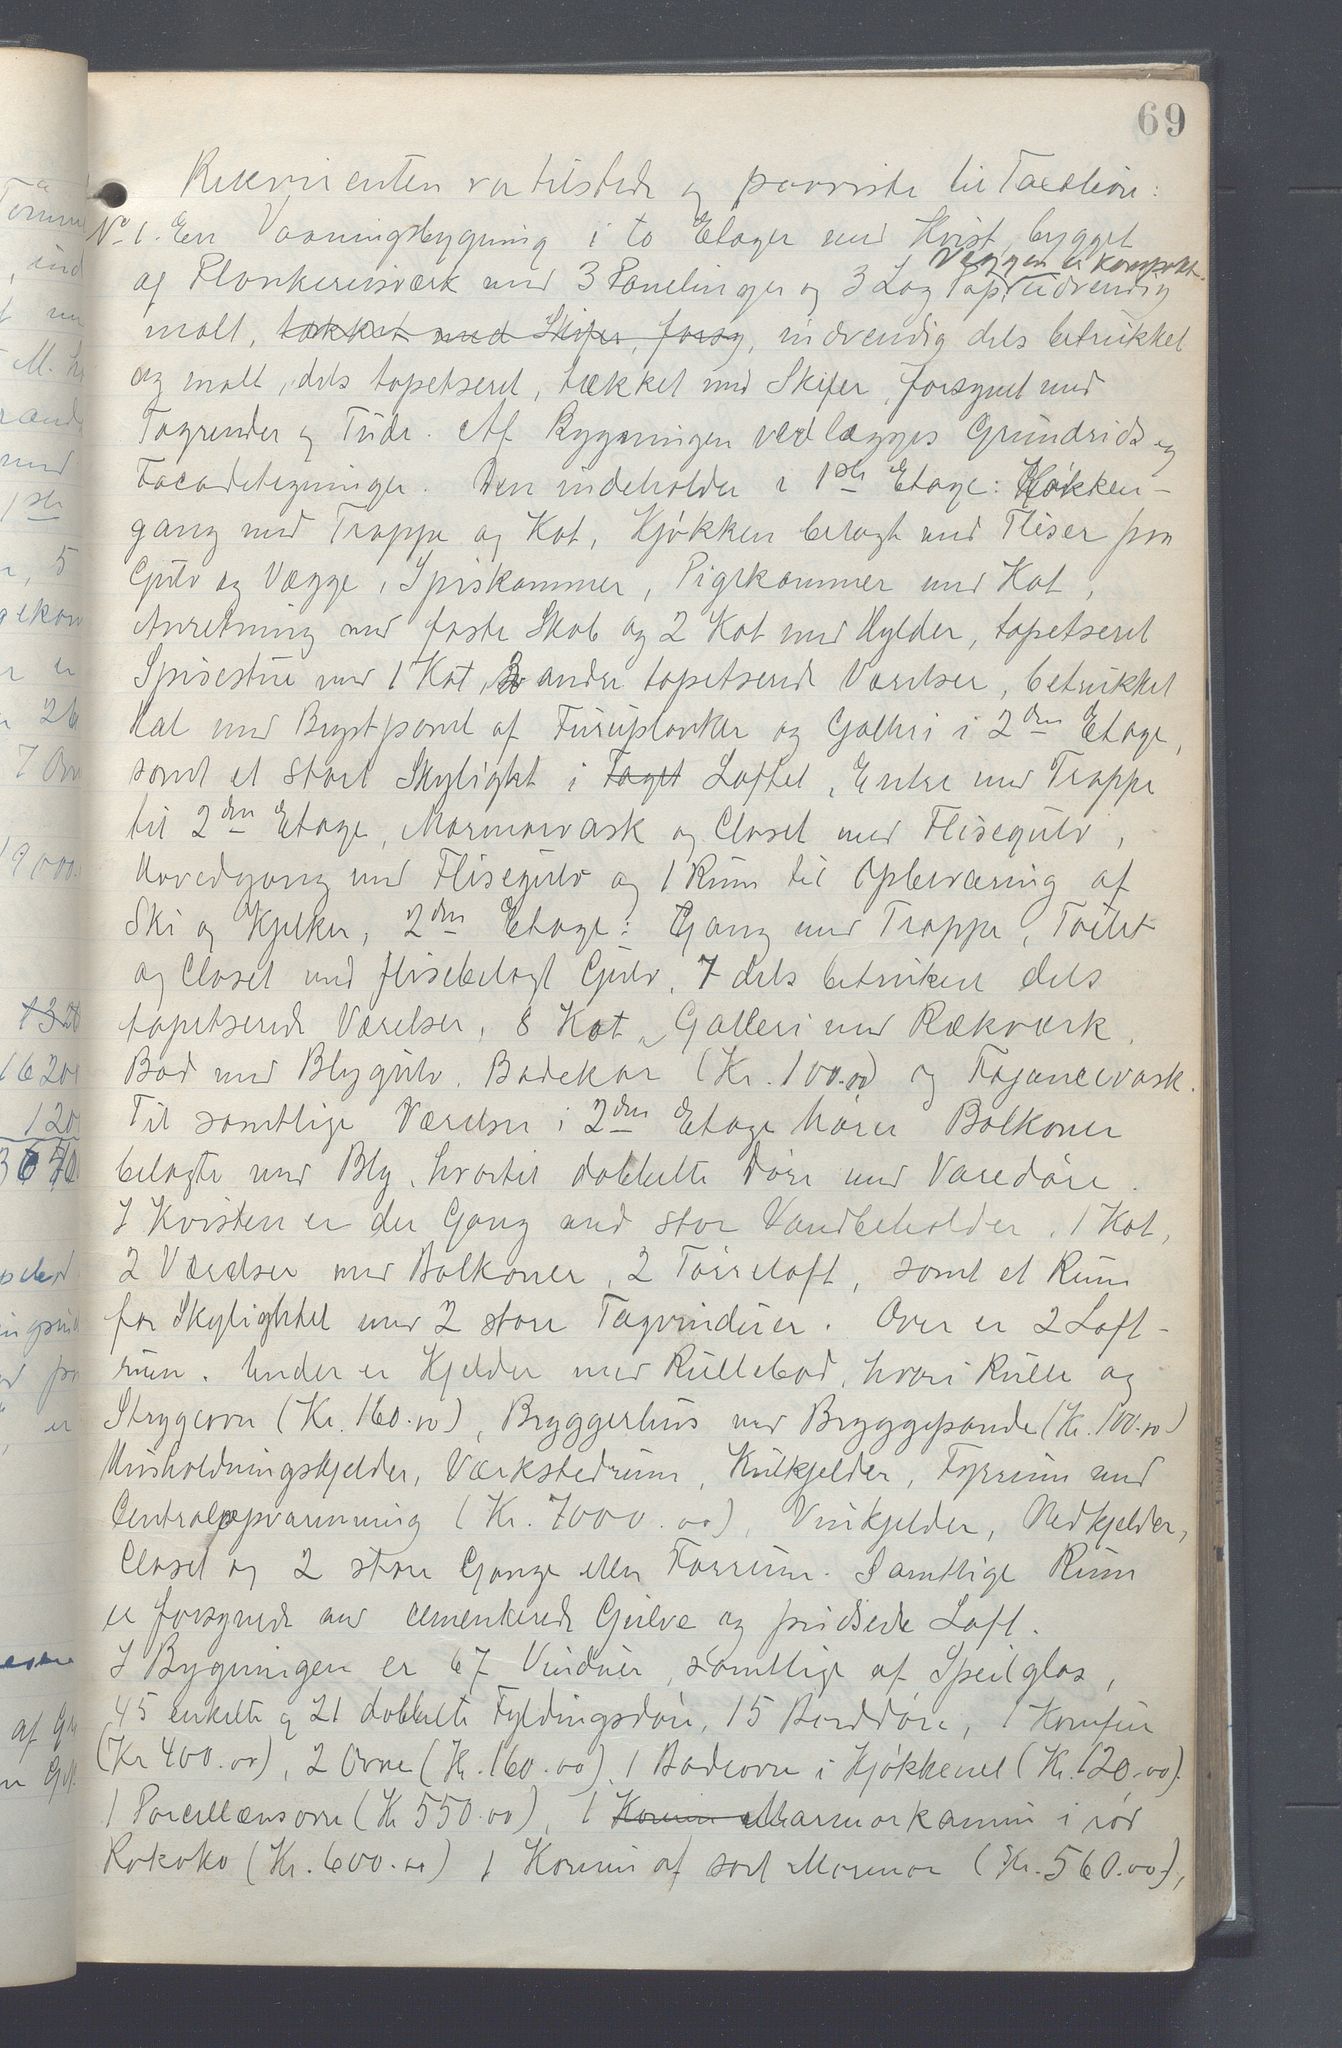 69
Rekvirenten var tilstede og paaviste til Taxation:
No 1. En Vaaningsbygning i to Etager med Kvist bygget
Væggen er kompakt.
af Plankereisværk med 3 Panelinger og 3 Lag Pap, udvendig
malt, tækket med Skifer, forsy, indvendig dels betrukket
og malt, dels tapetseret, tækket med Skifer, forsynet med
Tagrender og Tude. Af Bygningen vedlægges Grundrids og
Facadetegninger. Den indeholder i 1ste Etage: Kjøkken-
gang med Trappe og Kot, Kjøkken belagt med Fliser paa
Gulv og Vægge, Spiskammer, Pigekammer med Kot,
Anretning med faste Skab og 2 Kot med Hylder, tapetseret
Spisestue med 1 Kot, 3 andre tapetserede Værelser, betrukket
Hal med Brystpanel af Furuplanker og Galleri i 2den Etage,
samt et stort Skylight i Taget Loftet, Entre med Trappe
til 2den Etage, Marmorvask og Closet med Flisegulv,
Hovedgang med Flisegulv og 1 Rum til Opbevaring af
Ski og Kjelker, 2den Etage: Gang med Trappe, Toilet
og Closet med flisebelagt Gulv, 7 dels betrukket dels
tapetserede Værelser, 8 Kot, Galleri med Rækværk,
Bad med Blygulv, Badekar (Kr. 100.00) og Fajancevask.
Til samtlige Værelser i 2den Etage hører Balkoner
belagte med Bly, hvortil dobbelte Døre med Varedøre.
I Kvisten er der Gang med stor Vandbeholder, 1 Kot,
2 Værelser med Balkoner, 2 Tørreloft, samt et Rum
for Skylightet med 2 store Tagvinduer. Over er 2 Loft-
rum. Under er Kjelder med Rullebod, hvori Rulle og
Strygeovn (Kr. 160.00), Bryggerhus med Bryggepande (Kr. 100.00)
Husholdningskjelder, Værkstedrum, Kulkjelder, Fyrrum med
Centralopvarmning (Kr. 7000.00), Vinkjelder, Vedkjelder,
Closet og 2 store Gange eller Forrum. Samtlige Rum
er forsynede med cementerede Gulve og pudsede Loft.
I Bygningen er 67 Vinduer, samtlige af Speilglas,
45 enkelte og 21 dobbelte Fyldingsdøre, 15 Borddøre, 1 Komfur
(Kr 400.00), 2 Ovne (Kr. 160.00), 1 Badeovn i Kjøkkenet (Kr. 120.00).
1 Porcellænsovn (Kr 550.00), 1 Kamin Marmorkamin i rød
Rokoko (Kr. 600.00) 1 Kamin af sort Marmor (Kr. 560.00),